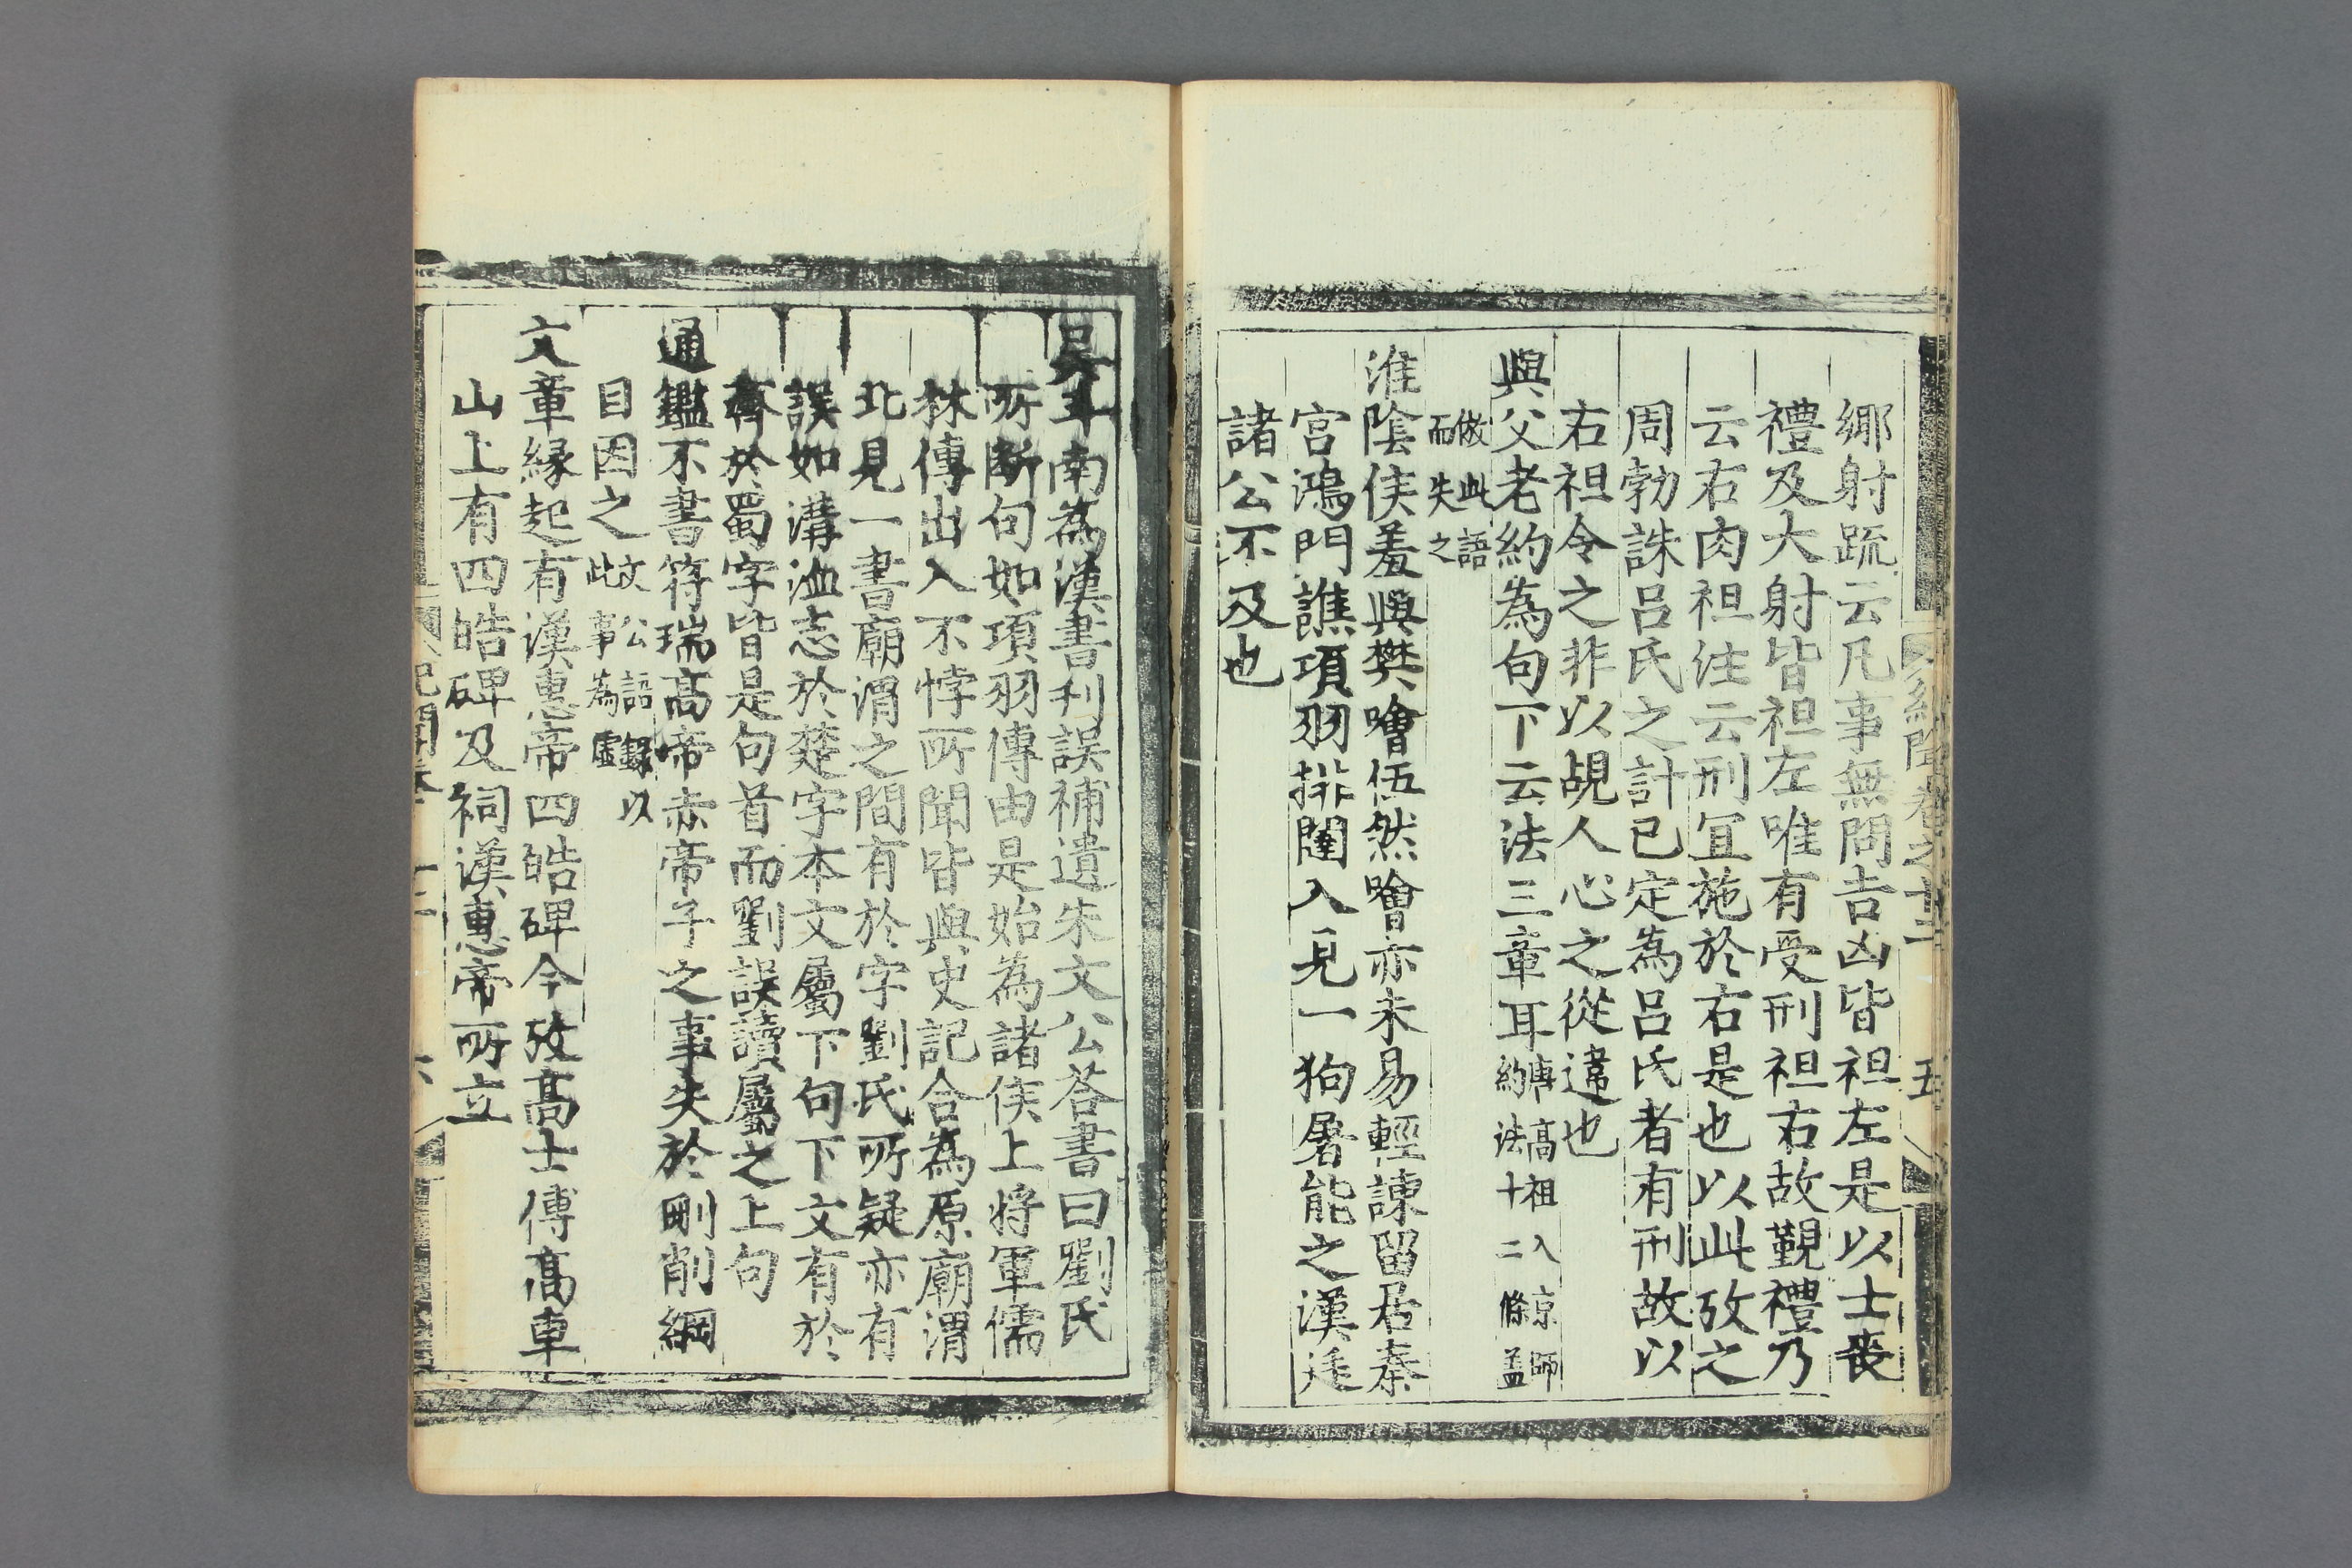 鄉射䟽云凡事無問吉凶皆袒左是以士喪
禮及大射皆袒左唯有受刑袒右故覲禮乃
云右肉袒注云刑宜施於右是也以此攷之
周勃誅呂氏之計已定為呂氏者有刑故以
右袒令之非以覘人心之從違也
與父老約為句下云法三章耳唐高祖入京師約法十二條盖
倣此語而失之
淮陰侯羞與樊噲伍然噲亦未易輕諫留居秦
宮鴻門譙項羽排闥入見一狗屠能之漢廷
諸公不及也
吳斗南為漢書刋誤補遺朱文公荅書曰劉氏
所斷句如項羽傳由是始為諸侯上將軍儒
林傳出入不悖所聞皆與史記合為原廟渭
北見一書廟渭之間有於字劉氏所疑亦有
誤如溝洫志於楚字本文屬下句下文有於
齊於蜀字皆是句首而劉誤讀屬之上句
通鑑不書符瑞高帝赤帝子之事失於刪削綱
目因之文公語錄以此事為虛
文章緣起有漢惠帝四皓碑今攷高士傳高車
山上有四皓碑及祠漢惠帝所立